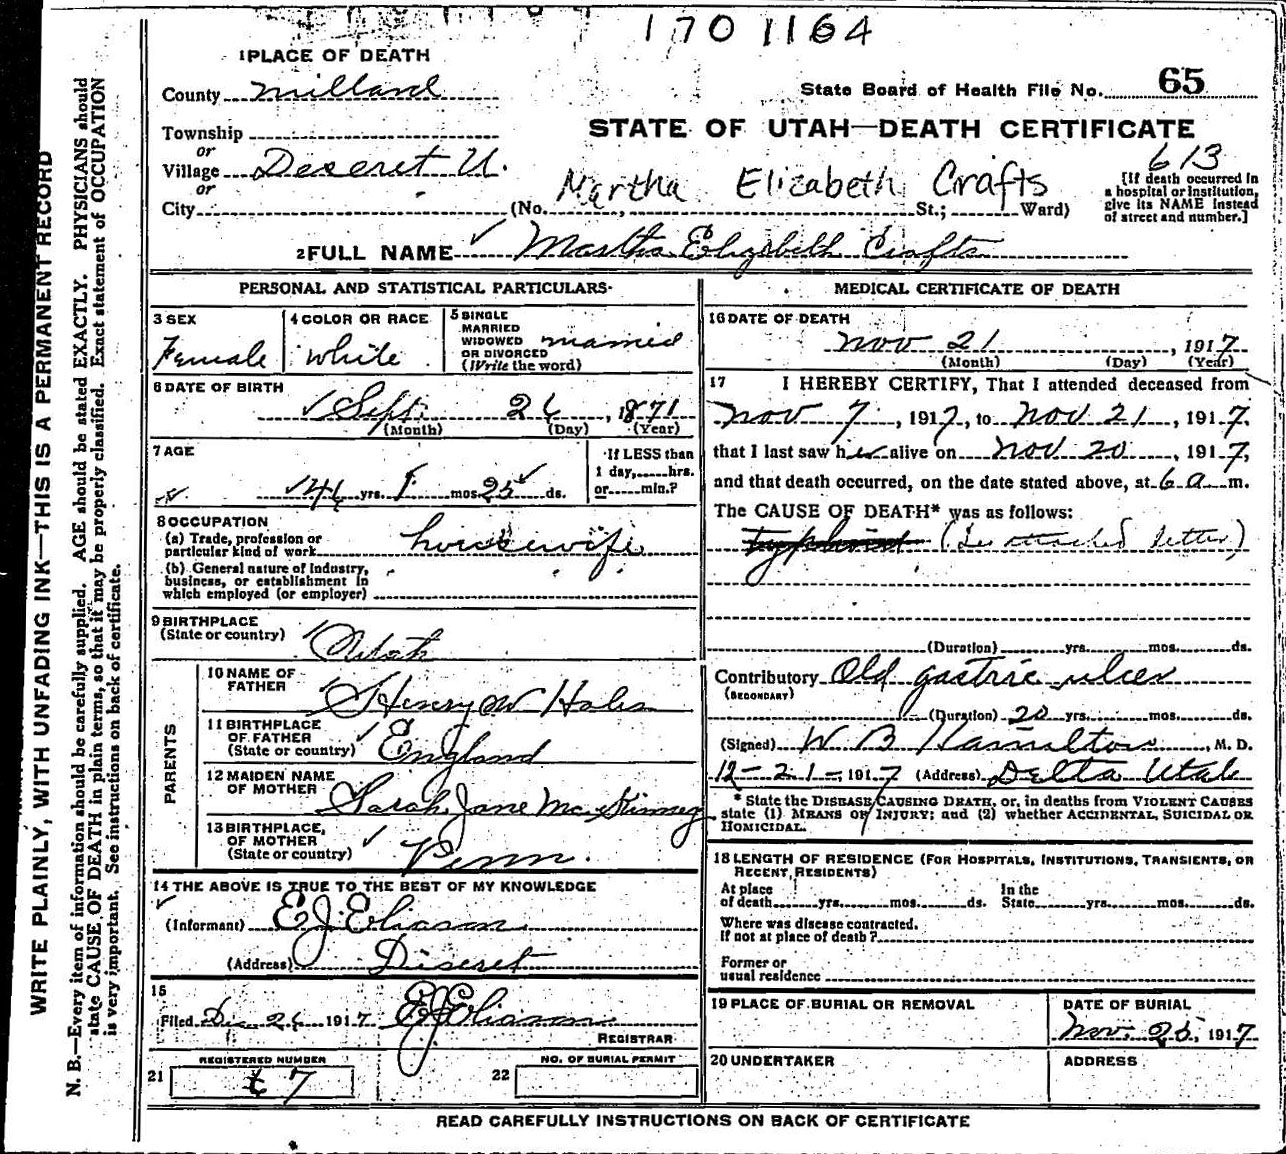 1701164
1 PLACE OF DEATH
County Millard
State Board of Health File No. 65
Township
or
STATE OF UTAH—DEATH CERTIFICATE
Village Deseret U.
or
613
Martha Elizabeth Crafts
[If death occurred in
a hospital or institution,
give its NAME instead
of street and number.]
City (No. , St.; Ward)
2 FULL NAME Martha Elizabeth Crafts
PERSONAL AND STATISTICAL PARTICULARS
3 SEX
Female
4 COLOR OR RACE
white
5 SINGLE
MARRIED
WIDOWED
OR DIVORCED
(Write the word)
married
6 DATE OF BIRTH
Sept. 26, 1871
(Month) (Day) (Year)
7 AGE
46 yrs. 1 mos. 25 ds.
If LESS than
1 day, hrs.
or min.?
8 OCCUPATION
(a) Trade, profession or
particular kind of work housewife
(b) General nature of Industry,
business, or establishment in
which employed (or employer)
9 BIRTHPLACE
(State or country) Utah
PARENTS
10 NAME OF
FATHER Henry W
11 BIRTHPLACE
OF FATHER
(State or country) England
12 MAIDEN NAME
OF MOTHER Sarah Jane
13 BIRTHPLACE,
OF MOTHER
(State or country) Penn.
14 THE ABOVE IS TRUE TO THE BEST OF MY KNOWLEDGE
(Informant) E J Eliason
(Address) Diseret
15
Filed Dec 26 1917 E J Eliason
REGISTRAR
REGISTERED NUMBER
21 7
NO. OF BURIAL PERMIT
22
MEDICAL CERTIFICATE OF DEATH
16 DATE OF DEATH
Nov 21, 1917
(Month) (Day) (Year)
17 I HEREBY CERTIFY, That I attended deceased from
Nov 7, 1917, to Nov 21, 1917,
that I last saw her alive on Nov 20, 1917,
and that death occurred, on the date stated above, at 6 a m.
The CAUSE OF DEATH* was as follows:
typhoid (See attached letter)
(Duration) yrs. mos. ds.
Contributory Old gastric ulcer
(SECONDARY)
(Duration) 20 yrs. mos. ds.
(Signed) W B Hamilton, M. D.
12-21-1917 (Address) Delta Utah
* State the DISEASE CAUSING DEATH, or, in deaths from VIOLENT CAUSES
state (1) MEANS OF INJURY; and (2) whether ACCIDENTAL, SUICIDAL OR
HOMICIDAL.
18 LENGTH OF RESIDENCE (FOR HOSPITALS, INSTITUTIONS, TRANSIENTS, OR
RECENT RESIDENTS)
At place
of death yrs. mos. ds.
In the
State yrs. mos. ds.
Where was disease contracted.
If not at place of death?
Former or
usual residence
19 PLACE OF BURIAL OR REMOVAL
DATE OF BURIAL
Nov. 25, 1917
20 UNDERTAKER
ADDRESS
READ CAREFULLY INSTRUCTIONS ON BACK OF CERTIFICATE
WRITE PLAINLY, WITH UNFADING INK—THIS IS A PERMANENT RECORD
N. B.—Every item of information should be carefully supplied. AGE should be stated EXACTLY. PHYSICIANS should
state CAUSE OF DEATH in plain terms, so that it may be properly classified. Exact statement of OCCUPATION
is very important. See instructions on back of certificate.